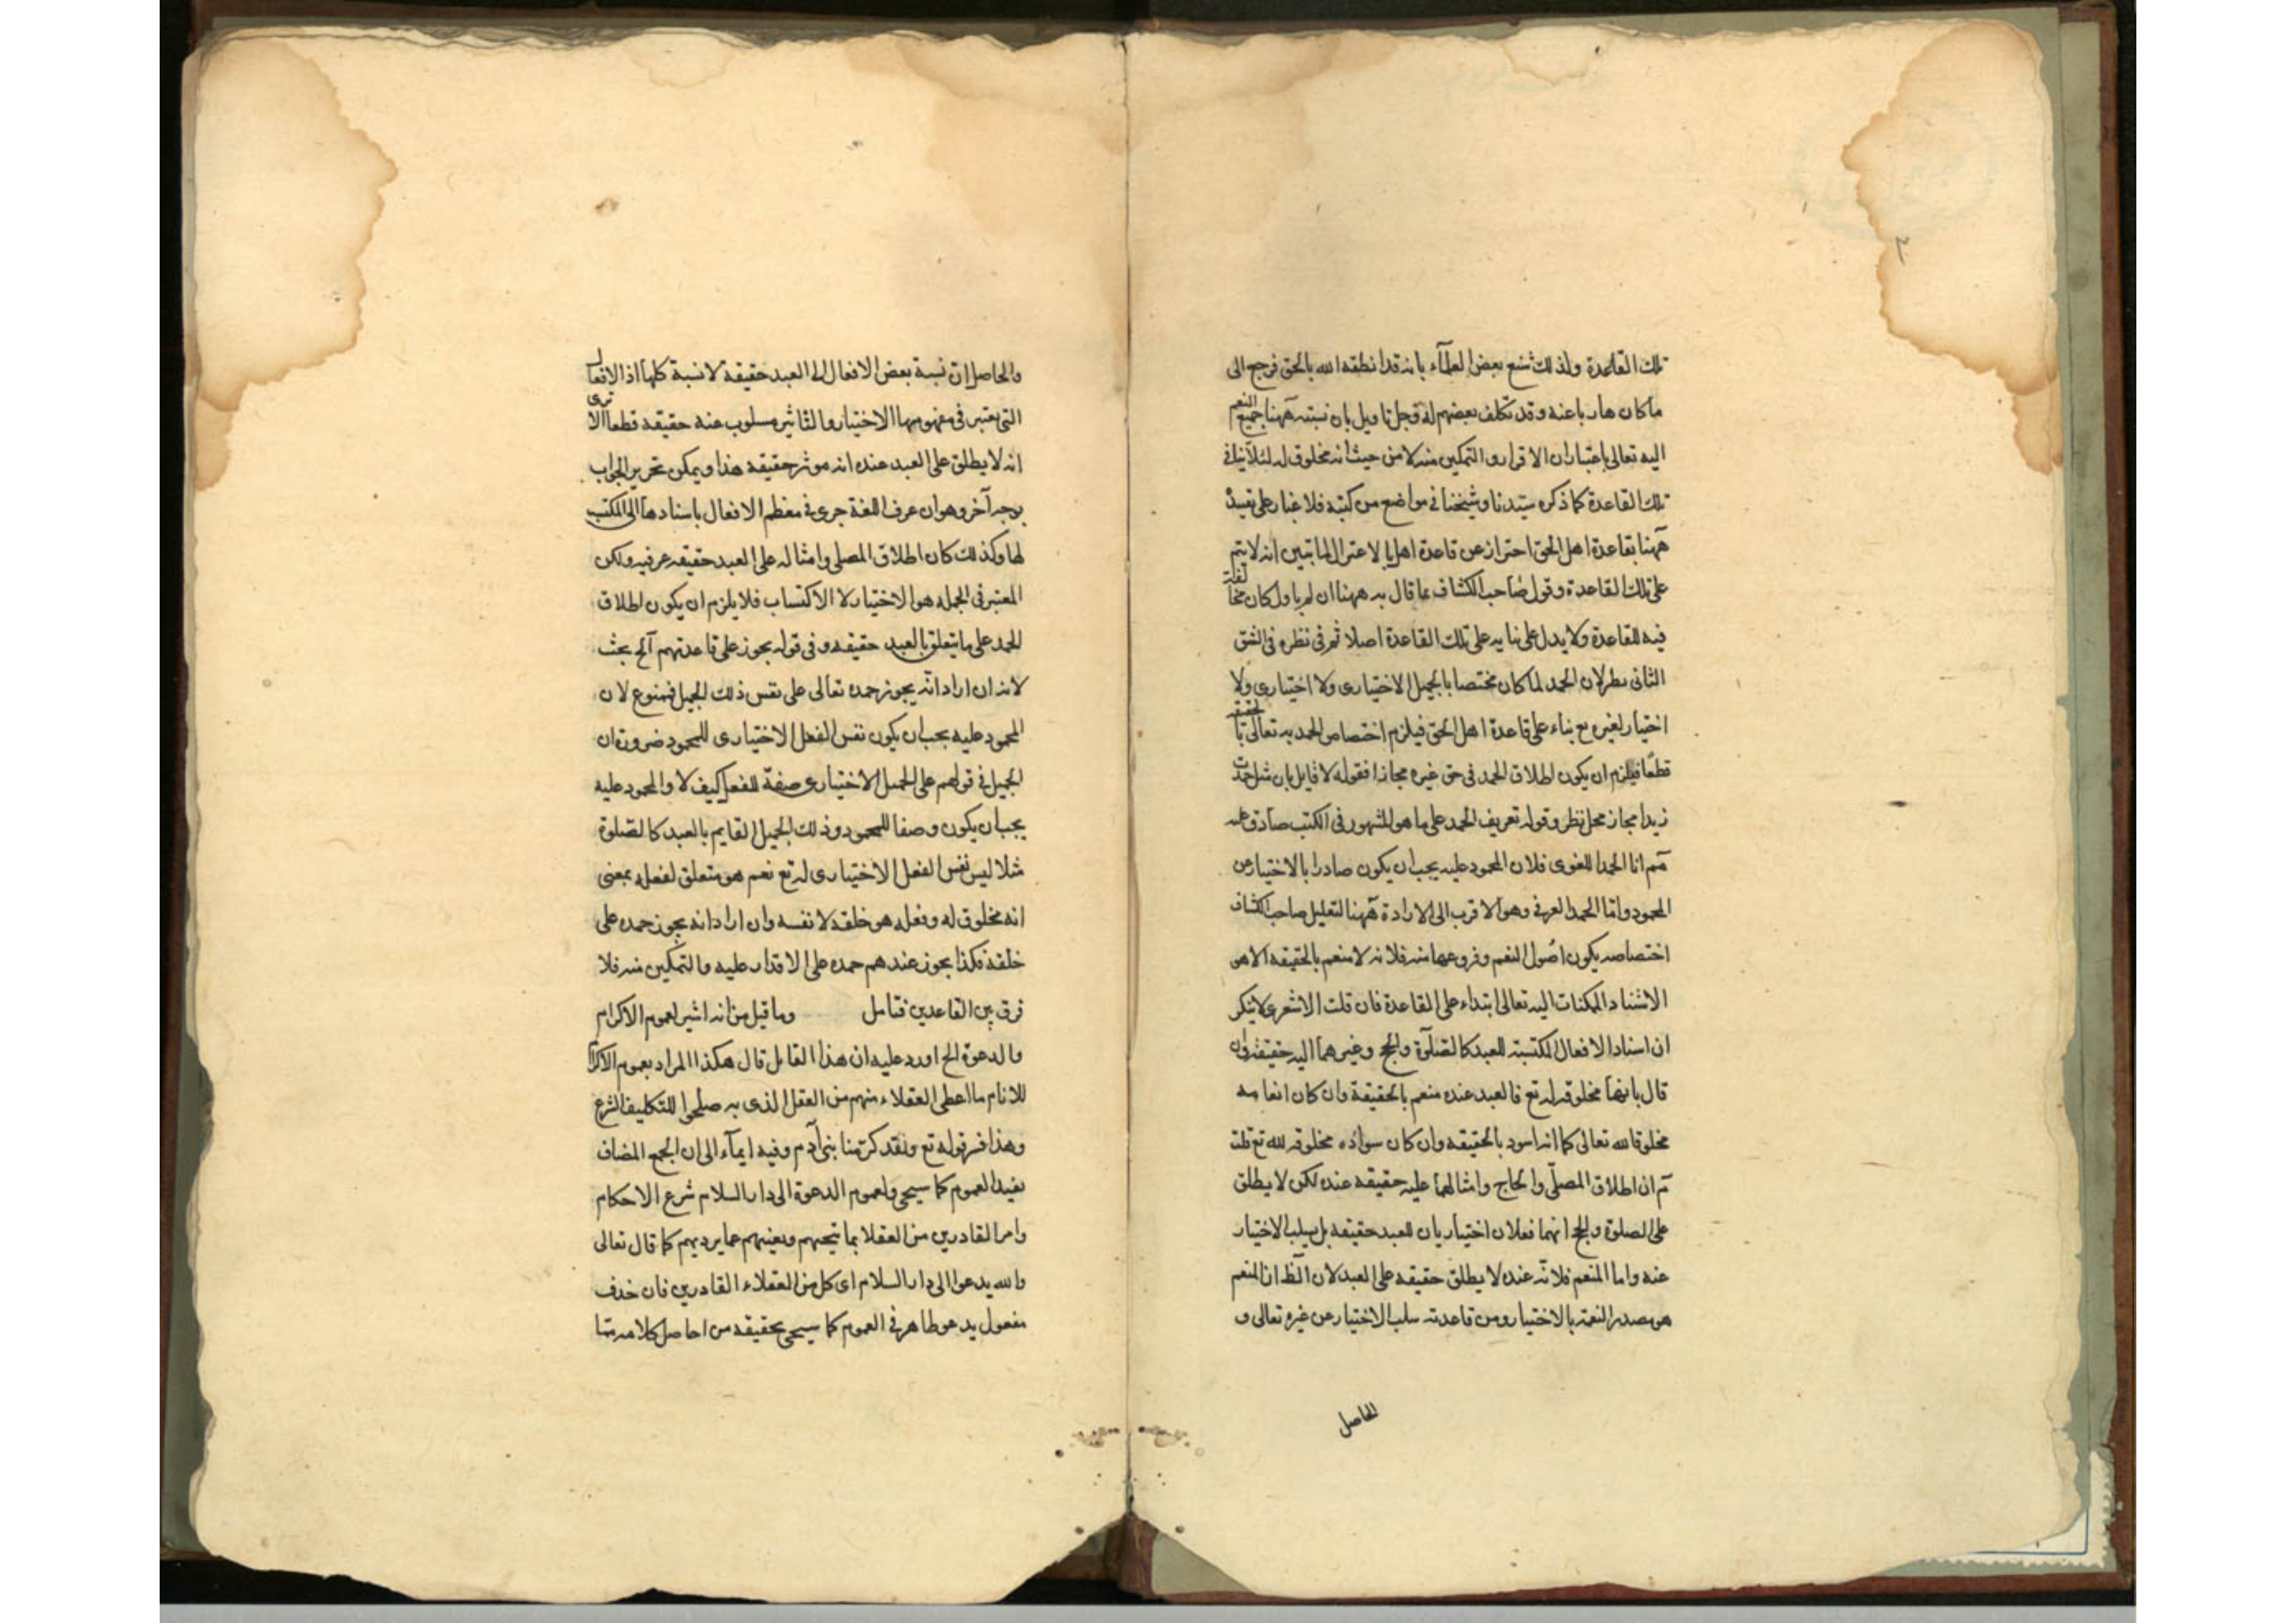 تلك القاعدة ولذلك شنع بعض العلماء بانه قد انطقه الله بالحق فرجع الى
ما كان هاربا عنه وقد تكلف بعضهم له فجل تاويل بان نسبته ههنا جميع النعم
اليه تعالى باعتبار ان الاقرار والتمكين منه لا من حيث انه مخلوق له لئلا ينافي
تلك القاعدة كما ذكره سيدنا وشيخنا في مواضع من كتبه فلا غبار على تقييد
ههنا بقاعدة اهل الحق احتراز عن قاعدة اهل الاعتزال لما تبين انه لا يتم
على تلك القاعدة وقول صاحب الكشاف بما قال به ههنا ان لم ياول كان مخالفة
فيه للقاعدة ولا يدل على بنائه على تلك القاعدة اصلا ثم في نظره في الشق
الثاني نظر لان الحمد لما كان مختصا بالجميل الاختياري ولا اختياري ولا
اختيار لغيره ح بناء على قاعدة اهل الحق فيلزم اختصاص الحمد به تعالى حقيقة
قطعا فيلزم ان يكون اطلاق الحمد في حق غيره مجازا فقوله لا قايل بان مثل حمدت
زيدا مجاز محل نظر وقوله تعريف الحمد على ما هو المشهور في الكتب صادق عليه
مم اما الحمد اللغوي فلان المحمود عليه يجب ان يكون صادرا بالاختيار من
المحمود واما الحمد العرفي وهو الاقرب الى الارادة ههنا لتعليل صاحب الكشاف
اختصاصه بكون اصول النعم وفروعها منه فلانه لا منعم بالحقيقة الا هو
الاستناد الممكنات اليه تعالى ابتداء على القاعدة فان قلت الاشعري لا ينكر
ان اسناد الافعال المكتسبة للعبد كالصلوة والحج وغيرهما اليه حقيقة وان
قال بانها مخلوقة له تع فالعبد عنده منعم بالحقيقة وان كان انعامه
مخلوقا لله تعالى كما انه اسود بالحقيقة وان كان سواده مخلوقه لله تع قلت
ثم ان اطلاق المصلى والحاج وامثالهما عليه حقيقة عنده لكن لا يطلق
على الصلوة والحج انهما فعلان اختياريان للعبد حقيقة بل يسلب الاختيار
عنه واما المنعم فلانه عنده لا يطلق حقيقة على العبد لان الظ ان المنعم
هو مصدر النعمة بالاختيار ومن قاعدته سلب الاختيار عن غيره تعالى و
الحاصل
والحاصل ان نسبة بعض الافعال الى العبد حقيقة لا نسبة كلها اذ الافعال
التي يعتبر في مفهومها الاختيار والتاثير مسلوب عنه حقيقة قطعا الا ترى
انه لا يطلق على العبد عنده انه موثر حقيقة هذا ويمكن تحرير الجواب
بوجه آخر وهو ان عرف اللغة جرى في معظم الافعال باسنادها الى المكتسب
لها وكذلك كان اطلاق المصلي وامثاله على العبد حقيقة عرفية ولكن
المعتبر في الجملة هو الاختيار لا الاكتساب فلا يلزم ان يكون اطلاق
الحمد على ما يتعلق بالعبد حقيقة وفي قوله يجوز على قاعدتهم آلخ بحث
لانه ان اراد انه يجوز حمده تعالى على نفس ذلك الجميل فممنوع لان
المحمود عليه يجب ان يكون نفس الفعل الاختياري للمحمود ضرورة ان
الجميل في قولهم على الجميل الاختياري صفة للفعل كيف لا والمحمود عليه
يجب ان يكون وصفا للمحمود وذلك الجميل القايم بالعبد كالصلوة
مثلا ليس نفس الفعل الاختياري له تع نعم هو متعلق لفعله بمعنى
انه مخلوق له وفعله هو خلقه لا نفسه وان اراد انه يجوز حمده على
خلقه فكذا يجوز عندهم حمده على الاقدار عليه والتمكين منه فلا
فرق بين القاعدين فتامل وما قيل من انه اشير لعموم الاكرام
والدعوة الخ اورد عليه ان هذا القايل قال هكذا المراد بعموم الاكرام
للانام ما اعطى العقلاء منهم من العقل الذي به صلحوا للتكليف الشرع
وهذا فسر قوله تع ولقد كرمنا بني آدم وفيه ايماء الى ان الجمع المضاف
يفيد العموم كما سيجى ولعموم الدعوة الى دار السلام شرع الاحكام
وامر القادرين من العقلا بما ينجيهم ونهيهم عما يرديهم كما قال تعالى
والله يدعوا الى دار السلام اى كل من العقلاء القادرين فان حذف
مفعول يدعو ظاهر في العموم كما سيجى تحقيقه من احاصل كلامه